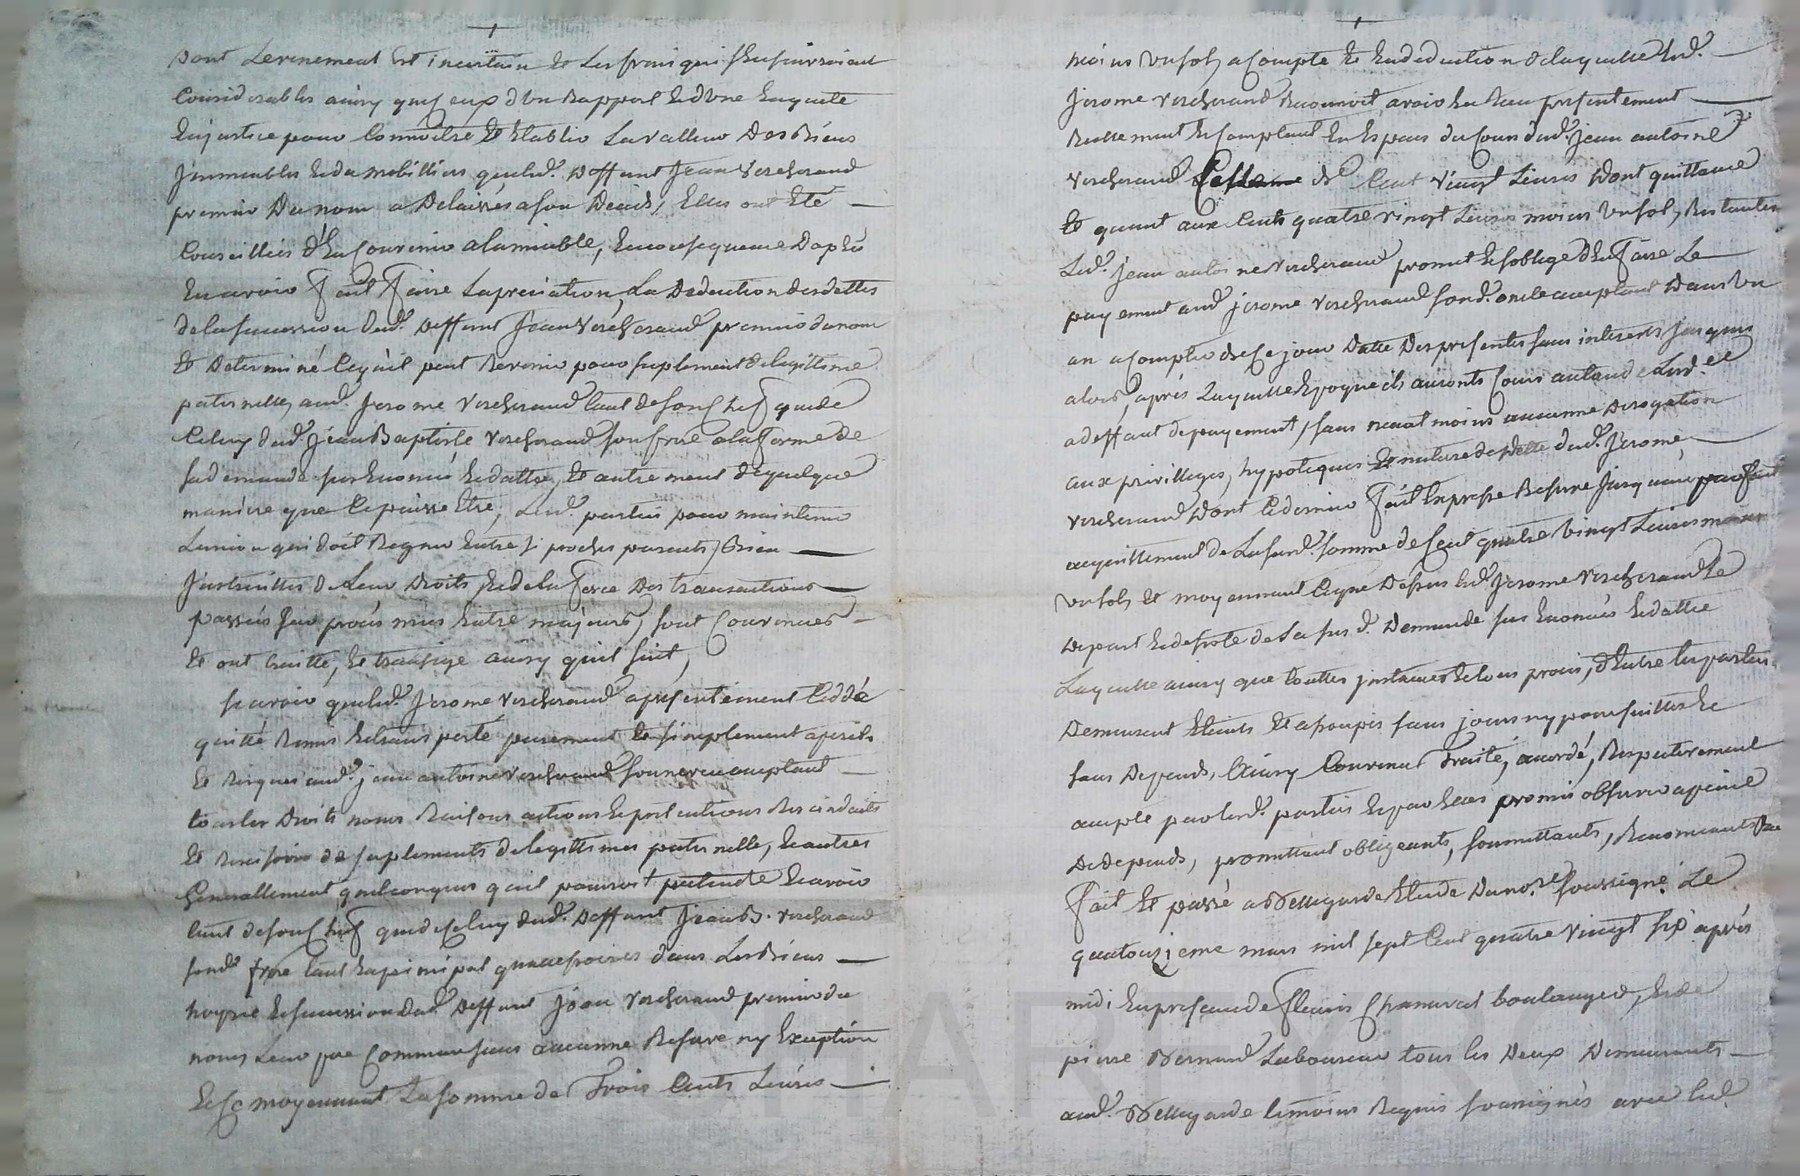 dont levenement Est incertain Et les frais qui sensuivroient
Considerables ainsy que Ceux d'un Rapport Et d'une Enquete
En justice pour Connoitre Et Etablir La valleur des Biens
jmmeubles Et du mobillier que led. deffunt Jean Vercherand
premier du nom a délaissés a son déces, Elles ont Eté
Conseillées d'En Convenir alamiable, En consequence d'aprés
En avoir fait faire lapreciation, La déduction des dettes
de la succession dud. deffunt Jean Vercherand premier du nom
Et determiné Ce qu'il peut Revenir pour suplement de legittime
paternelle, aud. Jerome Vercherand tant de son Chef que de
Celuy dud. jean Baptiste Vercherand son frere a la forme de
sa demande sus Enoncée Et dattée, Et autrement de quelque
maniere que Ce puisse Etre, Lesd. parties pour maintenir
Lunion qui doit Regner Entre si proches parents, Bien
Jnstruittes de Leur droits Et de la force des transactions
passées sur procés mus Entre majeurs, sont Convenues
Et ont traitté, Et transigé ainsy qu'il suit,
scavoir que led. Jerome Vercherand a presentement Ceddé
quitté Remis Et transporté purement Et simplement a perils
Et Risques aud. jean antoine Vercherand son neveu acceptant
tous les droits noms Raisons actions Et pretentions Rescindants
Et Rescisoires de suplements de legittimes paternelle, Et autres
Generallement quelconques qu'il pourroit pretendre Et avoir
tant de son Chef que de Celuy dud. deffunt Jean B. Vercherand
sond. frere tant En principal quaccessoires dans Les Biens
hoyrie Et succession dud. deffunt Jean Vercherand premier du
nom Leur pere Commun sans aucunne Reserve ny Exception
Et Ce moyennant La somme de Trois Cents Livres
moins un sol, a Compte Et En deduction de laquelle led.
Jerome Vercherand Reconnoit avoir Eu Receu presentement
Reellement Et Comptant En Especes du Cours dud. Jean antoine
Vercherand Celle de Cent Vingt Livres dont quittance
Et quant aux Cents quatre vingt Livres moins un sol, Restantes
Led. Jean antoine Vercherand promet Et soblige d'En faire Le
payement aud. jerome Vercherand sond. oncle acceptant dans un
an a Compter de Ce jour datte des presentes sans interests jusques
alors, aprés Laquelle Epoque ils auronts Cours au taux de Lord.ce
a deffaut de payement, sans neantmoins aucunne derogation
aux privilleges, hypoteques Et nature de dette dud. Jerome
Vercherand dont Ce dernier fait Expresse Reserve jusquau parfait
acquittement de La susd. somme de Cent quatre Vingt Livres moins
un sol, Et moyennant Ce que dessus led. Jerome Vercherand Se
depart Et desiste de La susd. demande sus Enoncée Et dattée
Laquelle ainsy que touttes jnstances Et tous procés, d'Entre les parties
demeurent Eteints Et assoupis sans jours ny poursuittes Et
sans depends, Ainsy Convenu Traité, accordé, Respectivement
accepté par lesd. parties Et par Elles promis observer a peine
de depends, promettant obligeants, soumettants, Renonceants &c
fait Et passé a Bellegarde Etude du no.re soussigné Le
quatorzieme mars mil sept Cent quatre Vingt six aprés
midi En presence de fleuris Chanavat boulanger, Et de
pierre Bernard Laboureur tous les deux demeurants
aud. Bellegarde temoins Requis soussignés avec led.